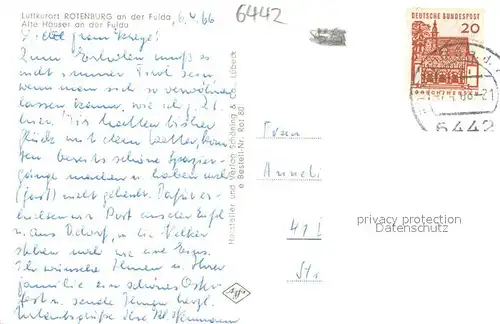 Luftkurort ROTENBURG an der Fulda
Alte Häuser an der Fulda
6.4.66
6442
DEUTSCHE BUNDESPOST
20
-21
6442
Zum Erholen muß es
nicht immer Tirol sein,
wenn man sich so verwöhnen
lassen kann, wie ich z. Zt.
hier. Wir hatten bisher
Glück mit dem Wetter, konn
ten bereits schöne Spazier-
gänge machen u. haben noch
(fast) nicht geheizt. Dafür er-
hielten wir Post aus der Eifel
u. aus D.dorf, u. die Nelken
stehen noch wie eine
Ich wünsche Ihnen u. Ihrer
Familie ein schönes Oster-
fest u. sende Ihnen herzl.
Urlaubsgrüße Ihre
Hersteller und Verlag Schöning & Co., Lübeck
Bestell-Nr. Rot 80
Frau
Anneli
41
Str
privacy protection
Datenschutz
Agfa